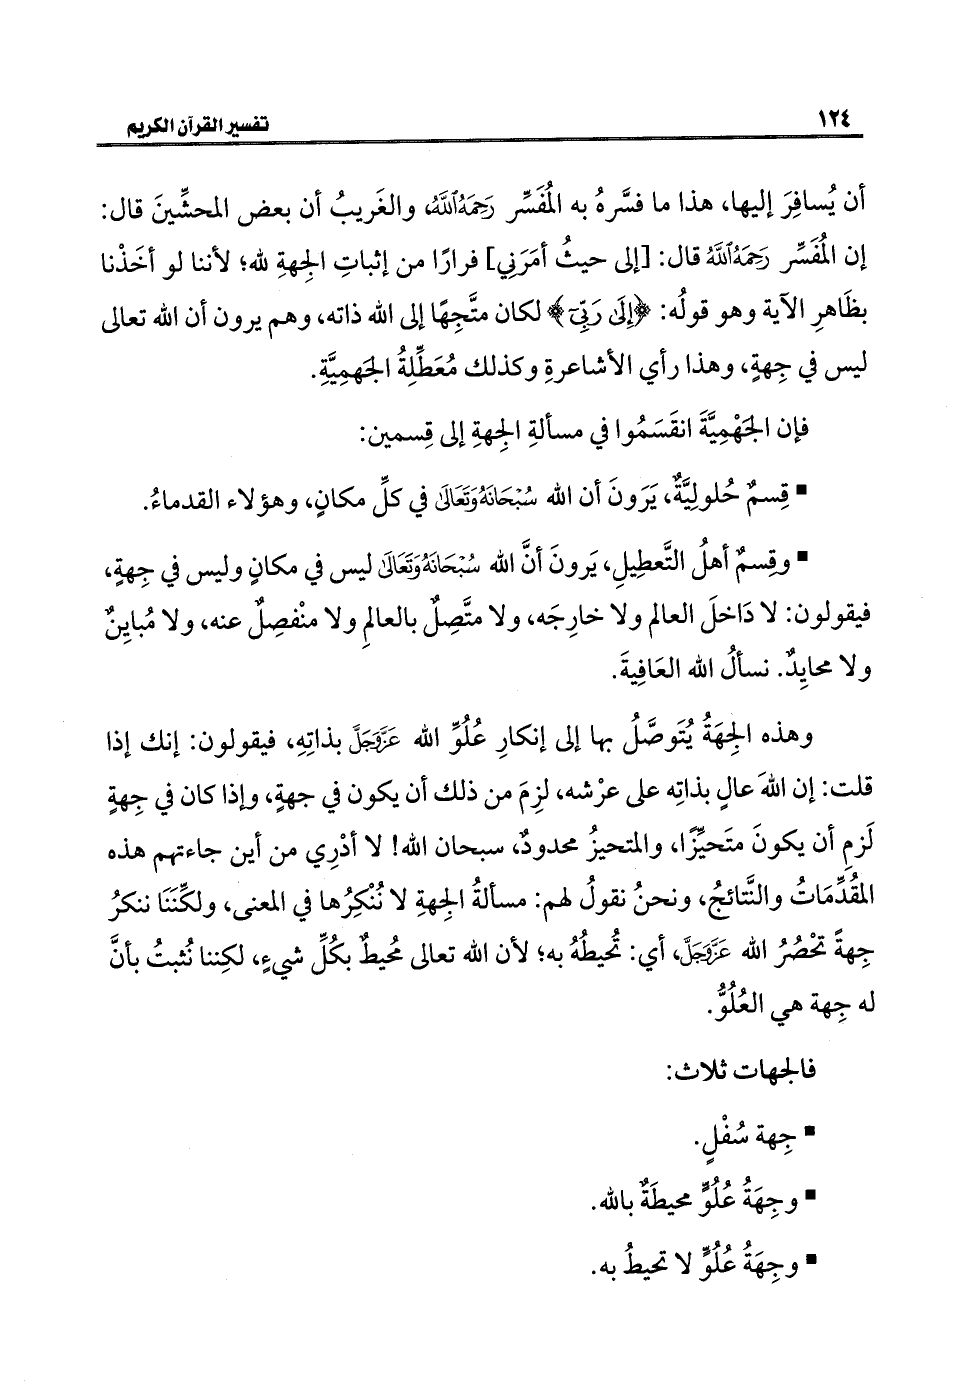 ١٢٤
تفسير القرآن الكريم
أن يُسافِرَ إليها، هذا ما فسَّرهُ به المُفَسِّر رَحِمَهُ ٱللَّهُ، والغَريبُ أن بعض المحشِّينَ قال:
إن المُفَسِّر رَحِمَهُ ٱللَّهُ قال: [إلى حيثُ أمَرَنِي] فرارًا من إثباتِ الجِهةِ لله؛ لأننا لو أخَذْنا
بظَاهرِ الآية وهو قولُه: ﴿إِلَىٰ رَبِّيٓ﴾ لكان متَّجِهًا إلى الله ذاته، وهم يرون أن الله تعالى
ليس في جِهةٍ، وهذا رأي الأشاعرةِ وكذلك مُعَطِّلِةُ الجَهمِيَّةِ.
فإن الجَهْمِيَّةَ انقَسَمُوا في مسألةِ الجِهةِ إلى قِسمين:
▪ قِسمٌ حُلولِيَّةٌ، يَرَونَ أن الله سُبْحَانَهُ وَتَعَالَىٰ في كلِّ مكانٍ، وهؤلاء القدماءُ.
▪ وقِسمٌ أهلُ التَّعطِيلِ، يَرونَ أنَّ الله سُبْحَانَهُ وَتَعَالَىٰ ليس في مكانٍ وليس في جِهةٍ،
فيقولون: لا دَاخلَ العالم ولا خارجَه، ولا متَّصِلٌ بالعالمِ ولا منْفصِلٌ عنه، ولا مُبايِنٌ
ولا محايِدٌ. نسألُ الله العَافِيةَ.
وهذه الجِهَةُ يُتَوصَّلُ بها إلى إنكارِ عُلُوِّ الله عَزَّوَجَلَّ بذاتِهِ، فيقولون: إنك إذا
قلت: إن اللهَ عالٍ بذاتِه على عرْشه، لزِمَ من ذلك أن يكون في جهةٍ، وإذا كان في جِهةٍ
لَزمِ أن يكونَ متَحيِّزًا، والمتحيزُ محدودٌ، سبحان الله! لا أدْرِي من أين جاءتهم هذه
المُقُدِّمَاتُ والنَّتائجُ، ونحنُ نقولُ لهم: مسألةُ الجِهةِ لا نُنْكِرُها في المعنى، ولكنَّنَا ننكرُ
جِهةً تَحْصُرُ الله عَزَّوَجَلَّ، أي: تُحيطُهُ به؛ لأن الله تعالى مُحيطٌ بكُلِّ شيءٍ، لكِننا نُثبتُ بأنَّ
له جِهة هي العُلُوُّ.
فالجهات ثلاث:
▪ جِهة سُفْلٍ.
▪ وجِهَةُ عُلُوٍّ محيطَةٌ بالله.
▪ وجِهَةُ عُلُوٍّ لا تحيطُ به.